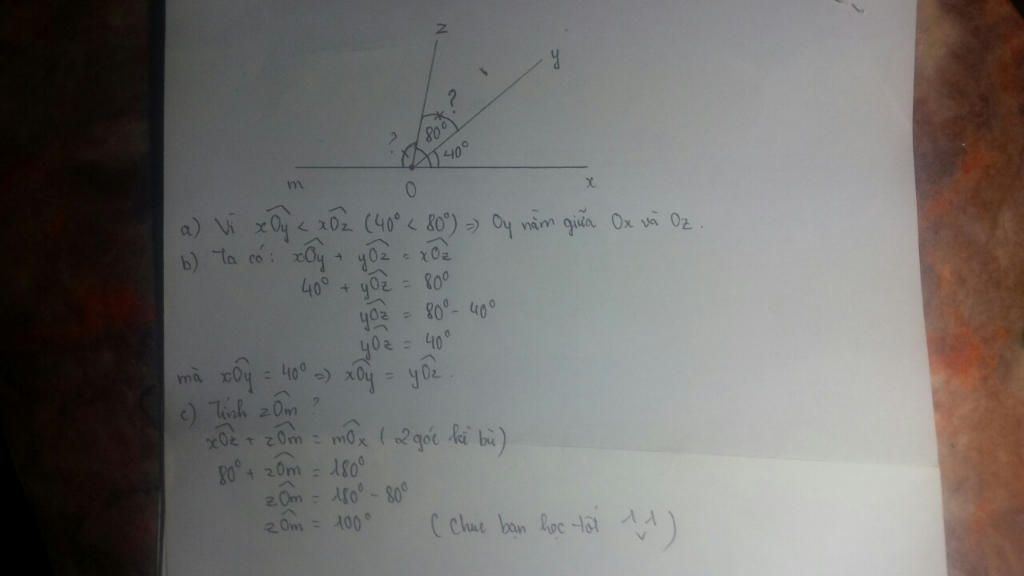 z
y
?
80°
?
40°
m
O
x
a) Vì xÔy < xÔz (40° < 80°) => Oy nằm giữa Ox và Oz.
b) Ta có: xÔy + yÔz = xÔz
40° + yÔz = 80°
yÔz = 80° - 40°
yÔz = 40°
mà xÔy = 40° => xÔy = yÔz.
c) Tính zÔm ?
xÔz + zÔm = mÔx (2 góc kề bù)
80° + zÔm = 180°
zÔm = 180° - 80°
zÔm = 100° (Chúc bạn học tốt ^v^)